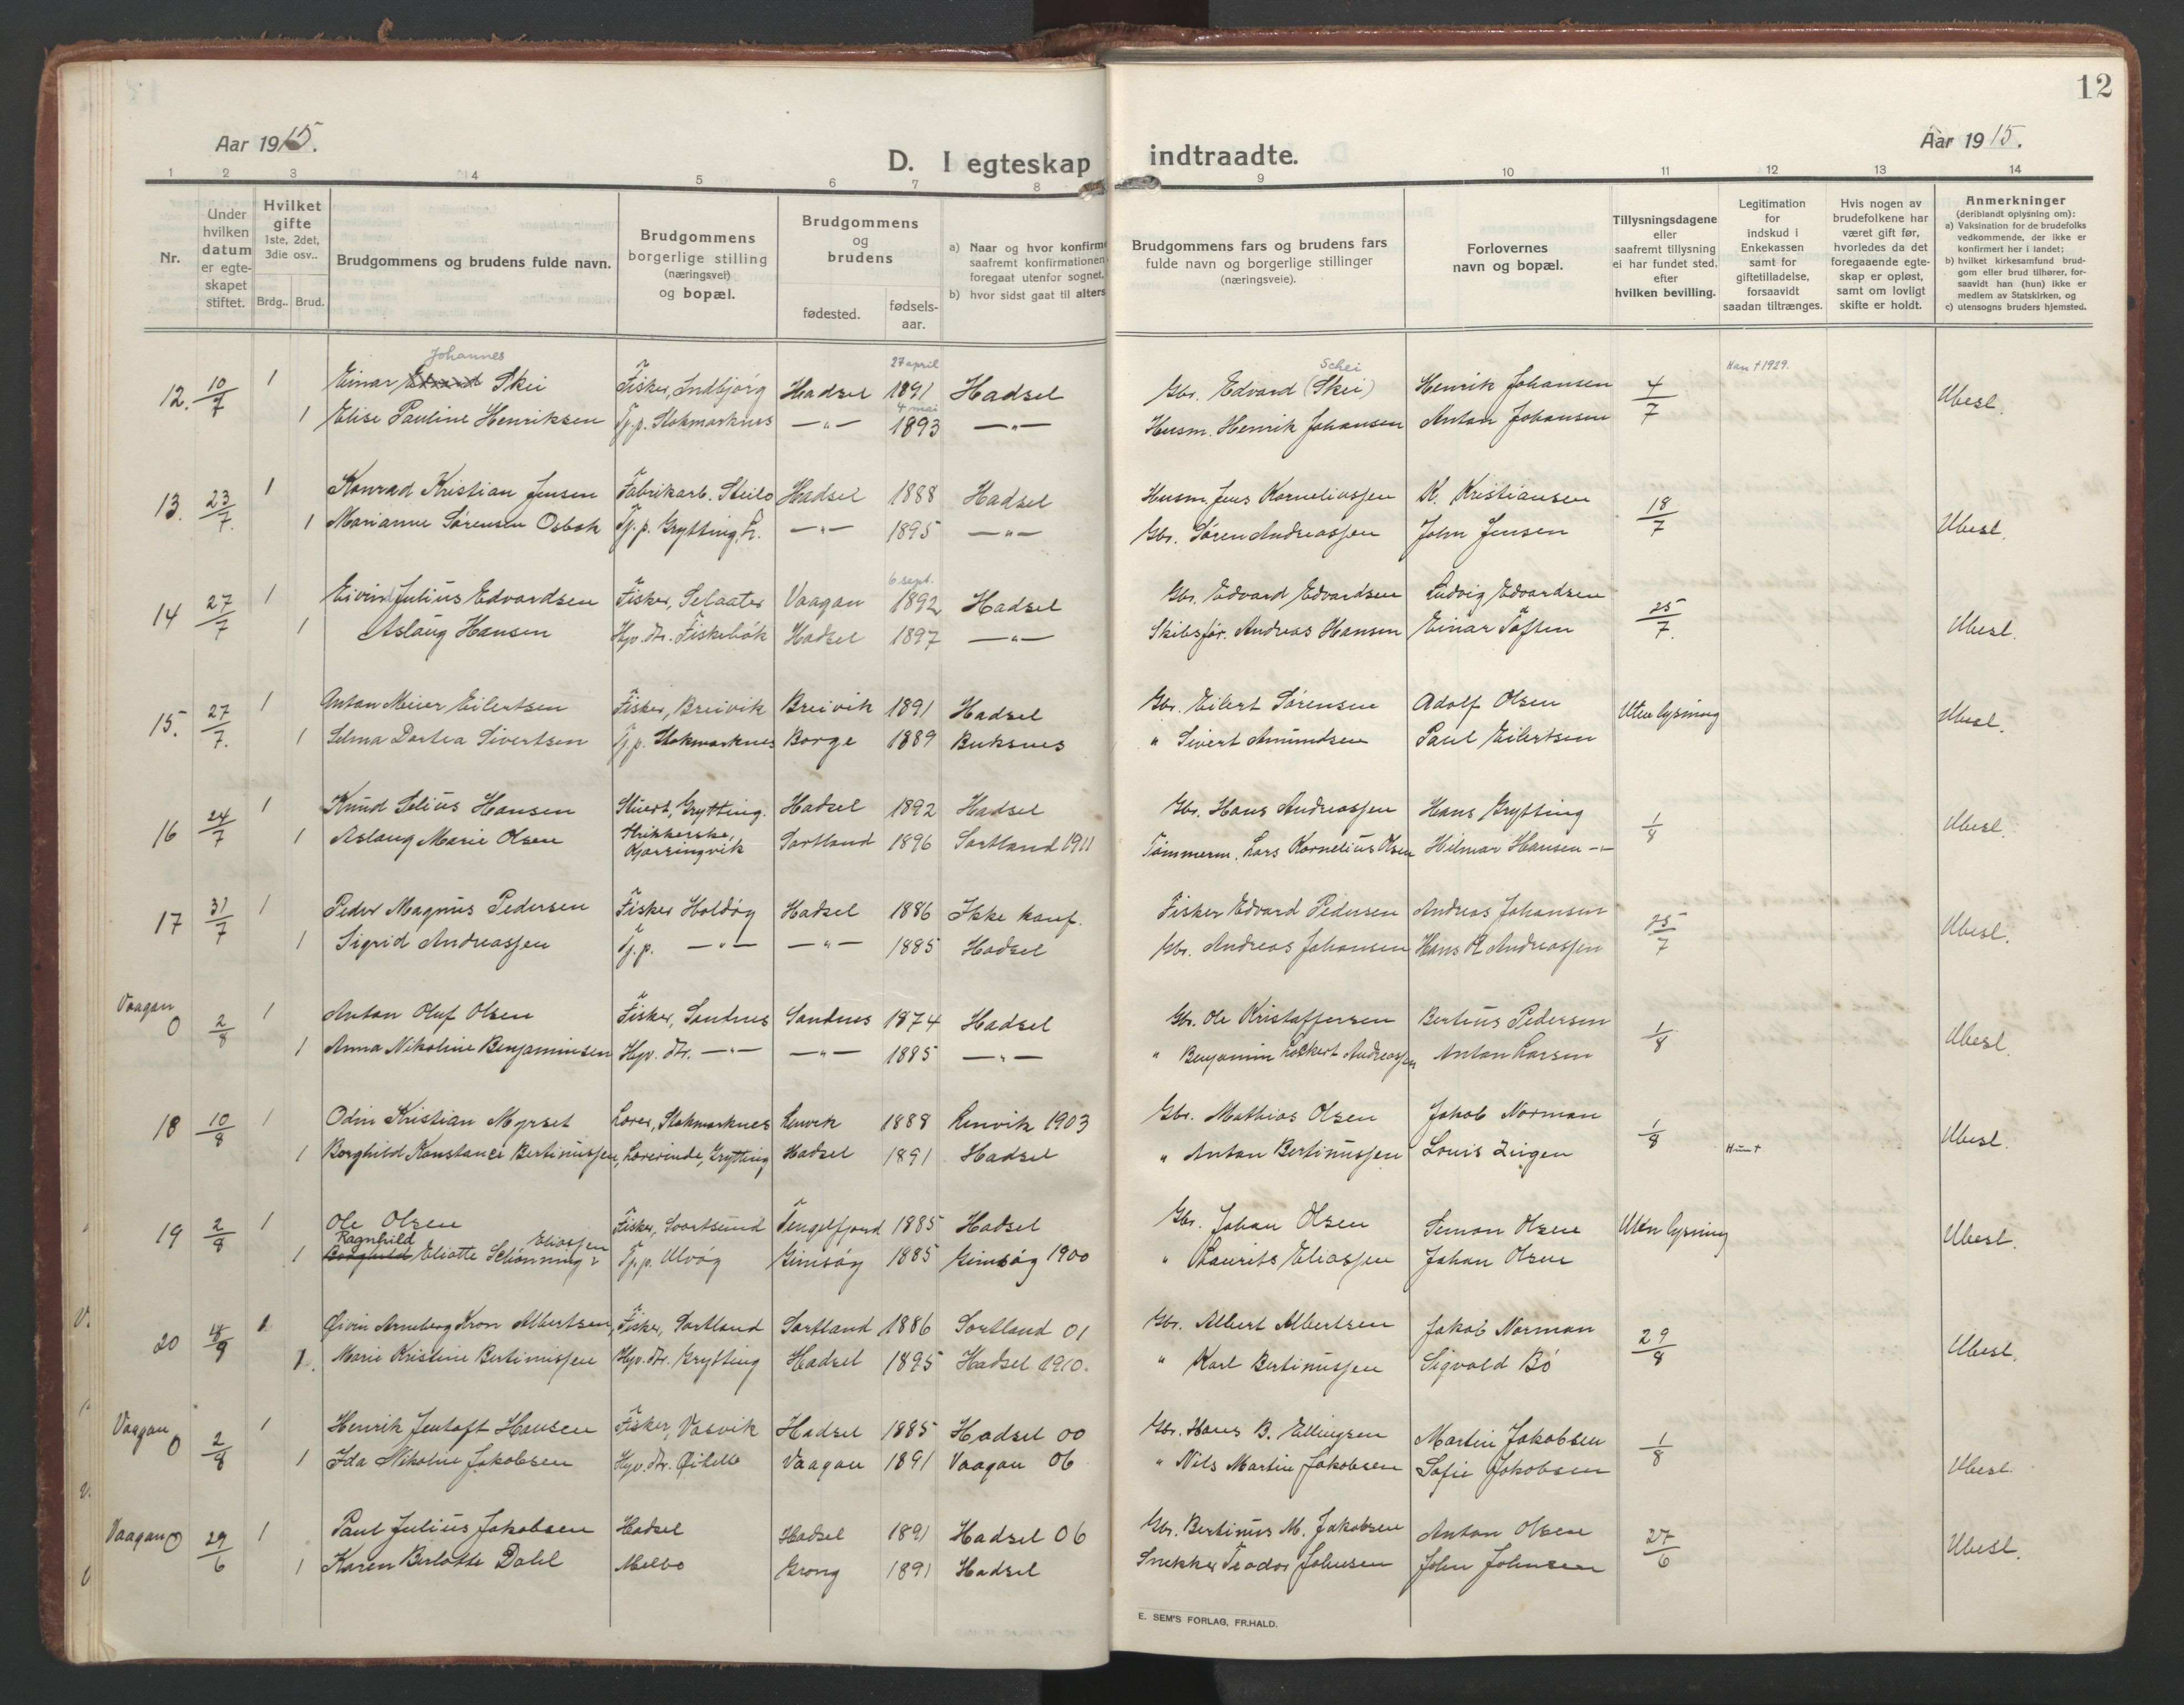 12
Aar 1915.
D. I egteskap indtraadte.
Aar 1915.
1 2 3 4 5 6 7 8 9 10 11 12 13 14
Nr.
Under hvilken datum er egte-skapet stiftet.
Hvilket gifte 1ste, 2det, 3die osv..
Brdg.. Brud.
Brudgommens og brudens fulde navn.
Brudgommens borgerlige stilling (næringsvei) og bopæl.
Brudgommens og brudens
fødested.
fødsels-aar.
a) Naar og hvor konfirme
saafremt konfirmationen
foregaat utenfor sognet,
b) hvor sidst gaat til alters
Brudgommens fars og brudens fars
fulde navn og borgerlige stillinger
(næringsveie).
Forlovernes
navn og bopæl.
Tillysningsdagene
eller
saafremt tillysning
ei har fundet sted,
efter
hvilken bevilling.
Legitimation
for
indskud i
Enkekassen
samt for
giftetilladelse,
forsaavidt
saadan tiltrænges.
Hvis nogen av
brudefolkene har
været gift før,
hvorledes da det
foregaaende egte-
skap er opløst,
samt om lovligt
skifte er holdt.
Anmerkninger
(deriblandt oplysning om):
a) Vaksination for de brudefolks
vedkommende, der ikke er
konfirmert her i landet;
b) hvilket kirkesamfund brud-
gom eller brud tilhører, for-
saavidt han (hun) ikke er
medlem av Statskirken, og
c) utensogns bruders hjemsted.
Johannes 27 april Schei Han † 1929.
12. 10/7 1 Einar Edvard Skei Fisker, Indbjorg Hadsel 1891 Hadsel Gbr. Edvard (Skei) Henrik Johansen 4/7 Ubesl.
4 mai
1 Elise Pauline Henriksen Tj.p. Stokmarknes —"— 1893 —"— Husm. Henrik Johansen Anton Johansen
13. 23/7. 1 Konrad Kristian Jensen Fabrikarb. Steilo Hadsel 1888 Hadsel Husm. Jens Korneliussen K. Kristiansen 18/7 Ubesl.
1 Marianne Sørensen Osbak Tj.p. Grytting, L. —"— 1895 —"— Gbr. Søren Andreassen John Jensen
6 sept.
14 27/7 1 Eivind Julius Edvardsen Fisker, Selaater Vaagan 1892 Hadsel Gbr. Edvard Edvardsen Ludvig Edvardsen 25/7. Ubesl.
1 Aslaug Hansen Hjv. dtr. Fiskebøk Hadsel 1897 —"— Skibsfør. Andreas Hansen Einar Toften
15. 27/7. 1 Anton Meier Eilertsen Fisker, Breivik Breivik 1891 Hadsel Gbr. Eilert Sørensen Adolf Olsen Uten lysning Ubesl.
1 Selma Dortea Sivertsen Tj.p. Stokmarknes Borge 1889 Buksnes " Sivert Amundsen Paul Eilertsen
16 24/7 1 Knud Selius Hansen Stuert, Grytting. Hadsel 1892 Hadsel Gbr. Hans Andreassen Hans Grytting 1/8 Ubesl.
1 Aslaug Marie Olsen Strikkerske, Kjørringvik Sortland 1896 Sortland 1911 Tømmerm. Lars Kornelius Olsen Hilmar Hansen —"—
17 31/7 1 Peder Magnus Pedersen Fisker Holdøy Hadsel 1886 Ikke konf. Fisker Edvard Pedersen Andreas Johansen 25/7 Ubesl.
1 Sigrid Andreassen Tj.p. —"— —"— 1885 Hadsel Gbr. Andreas Johansen Hans R Andreassen
Vaagan
0 2/8 1 Anton Oluf Olsen Fisker, Sandnes Sandnes 1874 Hadsel Gbr. Ole Kristoffersen Bertius Pedersen 1/8 Ubesl.
1 Anna Nikoline Benjaminsen Hjv. dtr. —"— —"— 1885 —"— " Benjamin Lockert Andreassen Anton Larsen
18 10/8 1 Odin Kristian Myrset Lærer, Stokmarknes Lenvik 1888 Lenvik 1903 Gbr. Mathias Olsen Jakob Norman 1/8 Ubesl.
1 Borghild Konstance Bertinussen, Lærerinde, Grytting Hadsel 1891 Hadsel " Anton Bertinussen Louis Zeigen Hun †
19 2/8 1 Ole Olsen Fisker, Svartsund Tengelfjord 1885 Hadsel Gbr. Johan Olsen Simon Olsen Uten lysning Ubesl.
Ragnhild Eliassen
1 Borghild Eliotte Schønning Tj.p. Ulvøy Gimsøy 1885 Gimsøy 1900 " Laurits Eliassen Johan Olsen
20 4/9 1 Øivin Arneberg Kron Albertsen, Fisker, Sortland Sortland 1886 Sortland 01 Gbr. Albert Albertsen Jakob Norman 29/8 Ubesl.
1. Marie Kristine Bertinussen Hjv. dtr. Grytting Hadsel 1895 Hadsel 1910. " Karl Bertinussen Sigvald Bø
Vaagan
0 2/8 1 Henrik Jentoft Hansen Fisker, Vasvik Hadsel 1885 Hadsel 00 Gbr. Hans B. Ellingsen Martin Jakobsen 1/8 Ubesl.
1 Ida Nikoline Jakobsen Hjv. dtr. Vaagan 1891 Vaagan 06 " Nils Martin Jakobsen Sofie Jakobsen
Vaagan 0 29/6 1 Paul Julius Jakobsen Hadsel Hadsel 1891 Hadsel 06 Gbr. Bertinus M. Jakobsen Anton Olsen 27/6 Ubesl.
1 Karen Berlotte Dahl Melbo Grong 1891 Hadsel Snekker Teodor Johnsen John Johnsen
E. SEM'S FORLAG, FR.HALD.